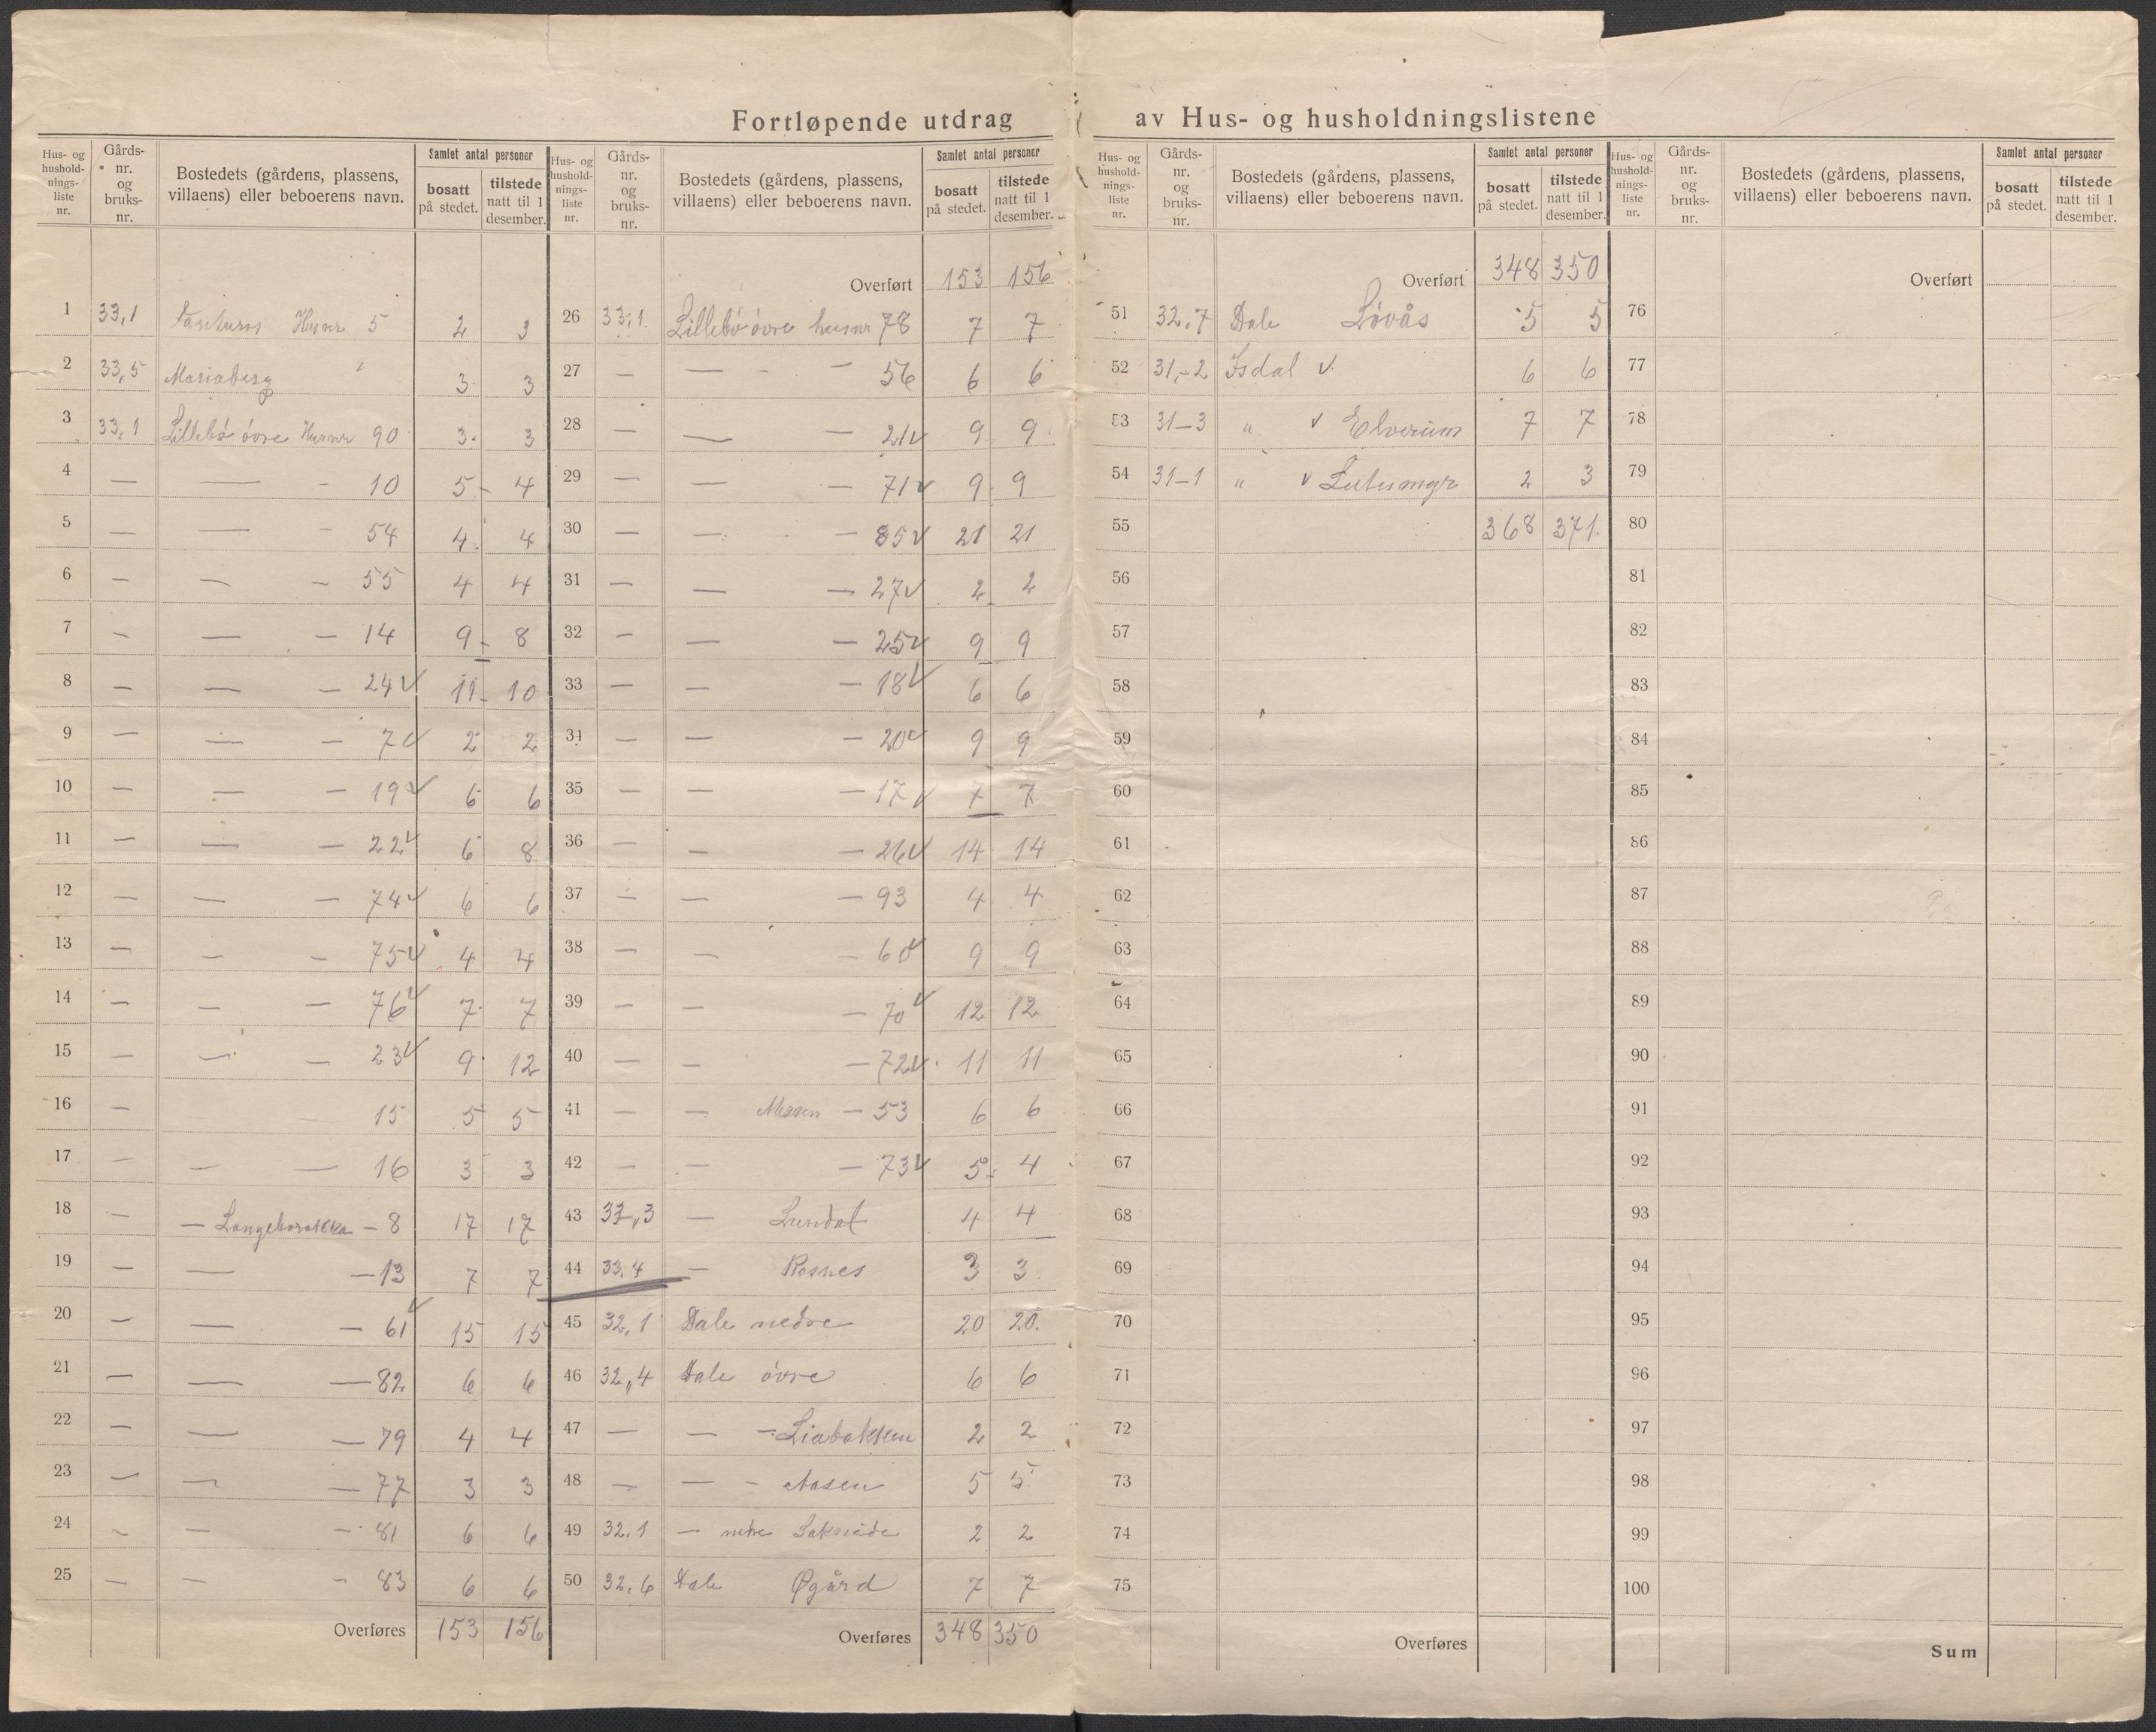 Fortløpende utdrag av Hus- og husholdningslistene
Hus- og hushold- nings- liste nr. | Gårds- nr. og bruks- nr. | Bostedets (gårdens, plassens, villaens) eller beboerens navn. | Samlet antal personer | bosatt på stedet. | tilstede natt til 1 desember.
1 33,1 Husnr 5 2 3
2 33,5 Mariaberg " 3 3
3 33,1 Lillebö övre Husnr 90 3 3
4 — — - 10 5 4
5 — — - 54 4 4
6 — — - 55 4 4
7 — — - 14 9 8
8 — — - 24 v 11 10
9 — — - 7 v 2 2
10 — — - 19 v 6 6
11 — — - 22 v 6 8
12 — — - 74 v 6 6
13 — — - 75 v 4 4
14 — — - 76 v 7 7
15 — — - 23 v 9 12
16 — - 15 5 5
17 — — - 16 3 3
18 — — - 8 17 17
19 — — - 13 7 7
20 — — - 61 v 15 15
21 — — - 82 6 6
22 — — - 79 4 4
23 — — - 77 3 3
24 — — - 81 6 6
25 — — - 83 6 6
Overføres 153 156
Hus- og hushold- nings- liste nr. | Gårds- nr. og bruks- nr. | Bostedets (gårdens, plassens, villaens) eller beboerens navn. | Samlet antal personer | bosatt på stedet. | tilstede natt til 1 desember.
Overført 153 156
26 33,1 Lillebö övre husnr 78 7 7
27 — — - 56 6 6
28 — — - 21 v 9 9
29 — — - 71 v 9 9
30 — — - 85 v 21 21
31 — — - 27 v 2 2
32 — — - 25 v 9 9
33 — — - 18 v 6 6
34 — — - 20 v 9 9
35 — — - 17 v 7 7
36 — — - 26 v 14 14
37 — — - 93 4 4
38 — — - 60 v 9 9
39 — — - 70 v 12 12
40 — — - 72 v 11 11
41 — — Messen - 53 6 6
42 — — - 73 v 5 4
43 33,3 — Lundal 4 4
44 33,4 — Rosnes 3 3
45 32,1 Dale nedre 20 20
46 32,4 Dale övre 6 6
47 — — - Liabakken 2 2
48 — — - Aasen 5 5
49 32,1 — nedre 2 2
50 32,6 Dale Øgård 7 7
Overføres 348 350
Hus- og hushold- nings- liste nr. | Gårds- nr. og bruks- nr. | Bostedets (gårdens, plassens, villaens) eller beboerens navn. | Samlet antal personer | bosatt på stedet. | tilstede natt til 1 desember.
Overført 348 350
51 32,7 Dale Lövås 5 5
52 31,-2 Isdal v. 6 6
53 31-3 " v Elverum 7 7
54 31-1 " v 2 3
55 368 371.
56
57
58
59
60
61
62
63
64
65
66
67
68
69
70
71
72
73
74
75
Overføres
Hus- og hushold- nings- liste nr. | Gårds- nr. og bruks- nr. | Bostedets (gårdens, plassens, villaens) eller beboerens navn. | Samlet antal personer | bosatt på stedet. | tilstede natt til 1 desember.
Overført
76
77
78
79
80
81
82
83
84
85
86
87
88
89
90
91
92
93
94
95
96
97
98
99
100
Sum